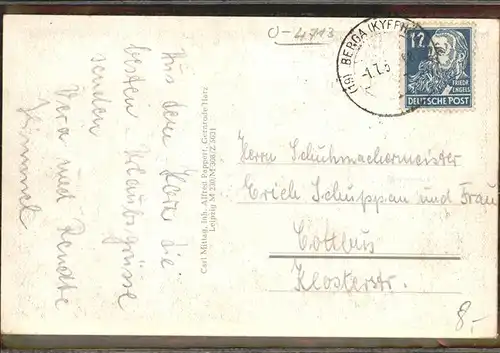 O-4713
(19) BERGA (KYFFH
-1.7.5
12
FRIEDR
ENGELS
DEUTSCHE POST
Aus dem Harz die
besten Urlaubsgrüsse
senden
Vera und Renate
Carl Mittag, Inh. Alfred Papport, Gernrode/Harz
Leipzig M 230/M 308/Z 5031
Herrn Schuhmachermeister
Erich Schuppan und Frau
Cottbus
Klosterstr.
8,-